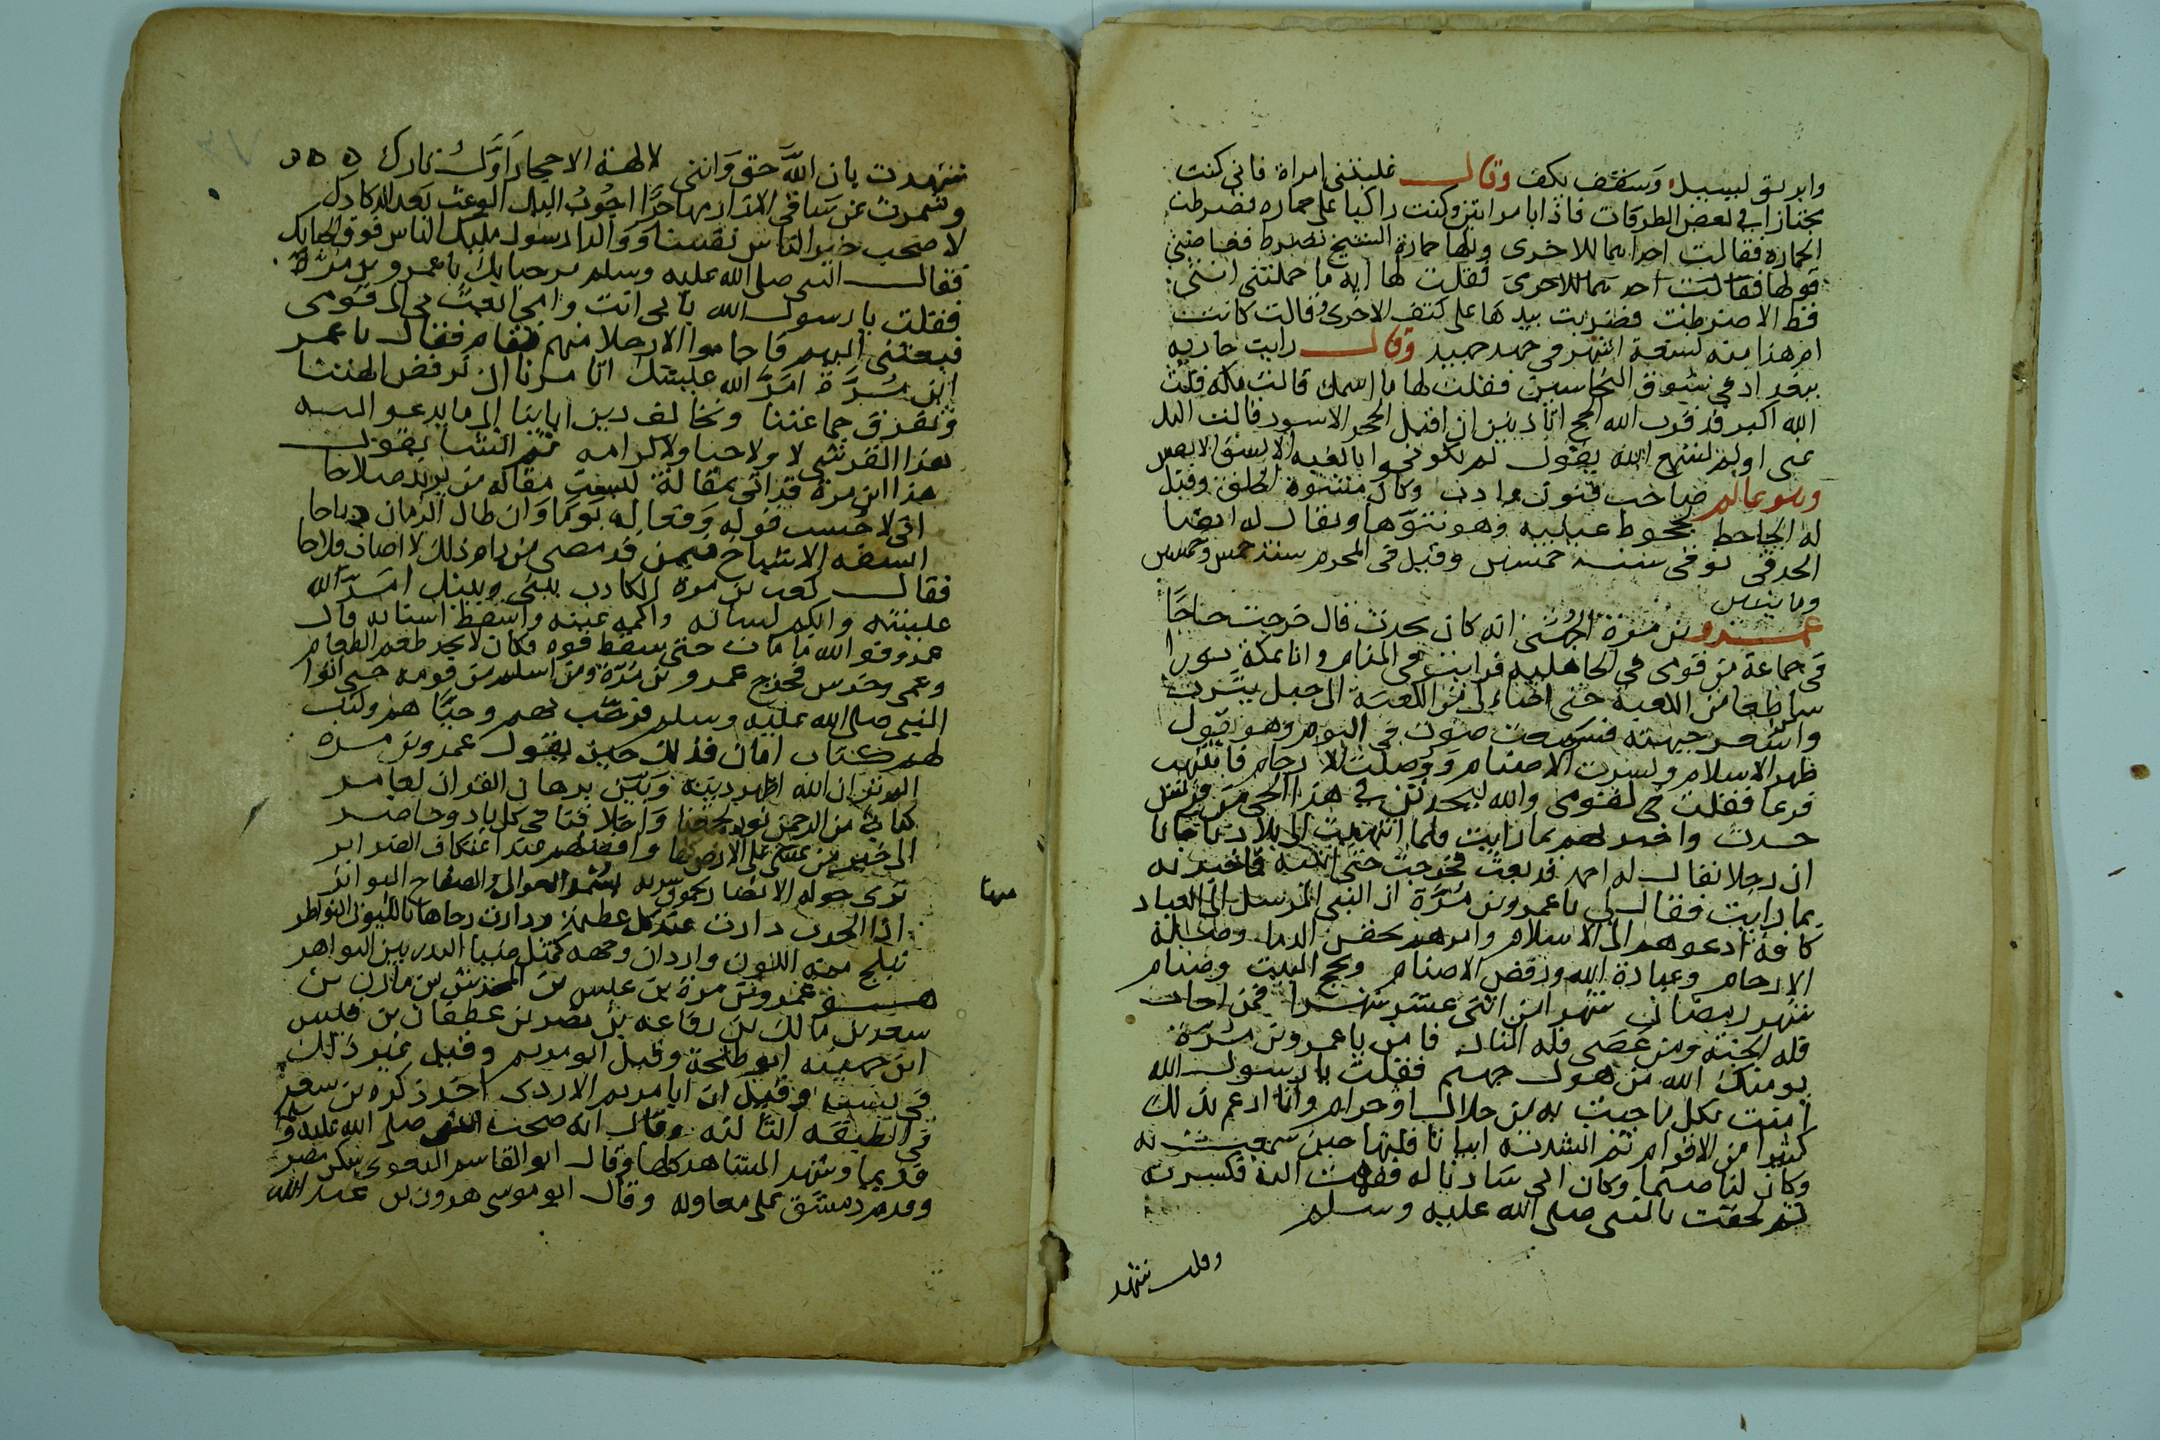 وابريق لبيبيل وسقف بكف وقال غلبتني امراة فاني كنت
مجتازا في بعض الطرقات فاذا بامراتين وكنت راكبا على حماره فضرطت
الحماره فقالت احداهما للاخرى وي حمارة الشيخ تضرط فغاضني
قولها فقالت احداهما للاخرى فقلت لها انه ما حملتني انثى
قط الا ضرطت فضربت بيدها على كتف الاخرى وقالت كانت
ام هذا منه لتسعة اشهر في جهد جهيد وقال رايت جارية
ببغداد في سوق النخاسين فقلت لها ما اسمك قالت مكه فقلت
الله اكبر قد قرب الله الحج اتاذنين ان اقبل الحجر الاسود قالت اليك
عني اولم تسمع الله يقول لم تكونوا بالغيه الا بشق الانفس
وهو عالم صاحب فنون وادب وكان مشوه الخلق وقيل
له الجاحظ لجحوظ عينيه وهو نتوها ويقال له ايضا
الحدقي توفي سنة خمسين وقيل في المحرم سنة خمس وخمسين
ومايتين
عمرو بن مرة الجهني انه كان يحدث قال خرجت حاجا
في جماعة من قومي في الجاهليه فرايت في المنام وانا بمكة نورا
ساطعا من الكعبة حتى اضاء لي من الكعبة الى جبل يثرب
واشعر جهينه فسمعت صوت في النوم وهو يقول
ظهر الاسلام وكسرت الاصنام ووصلت الارحام فانتبهت
فزعا فقلت لقومي والله ليحدثن في هذا الحي من قريش
حدث واخبرهم بما رايت فلما انتهيت الى بلادنا جانا
ان رجلا يقال له احمد قد بعث فخرجت حتى اتيته فاخبرته
بما رايت فقال لي يا عمرو بن مرة ان النبي المرسل الى العباد
كافة ادعوهم الى الاسلام وامرهم بحقن الدما وصلة
الارحام وعبادة الله ورفض الاصنام وبحج البيت وصيام
شهر رمضان شهر من اثني عشر شهرا فمن اجاب
فله الجنة ومن عصى فله النار فامن يا عمرو بن مرة
يومنك الله من هول جهنم فقلت يا رسول الله
امنت بكل ما جيت به من حلال او حرام وان ارغم ذلك
كثيرا من الاقوام ثم انشدته ابياتا قلتها حين سمعت به
وكان لنا صنما وكان ابي سادنا له فقمت اليه فكسرته
ثم لحقت بالنبي صلى الله عليه وسلم
وقلت شهد
شهدت بان الله حق وانني لالهة الاحجار اول تارك
وشمرت عن ساقي الازار مهاجرا اجوب اليك الوعث بعد الدكادك
لاصحب خير الناس نفسا ووالدا رسول مليك الناس فوق الحبايك
فقال النبي صلى الله عليه وسلم مرحبا بك يا عمرو بن مرة
فقلت يا رسول الله بابي انت وامي ابعث بي الى قومي
فبعثني اليهم فاجابوا الا رجلا منهم فقام فقال يا عمر
ابن مرة امر الله عليك اتامرنا ان نرفض الهتنا
ونفرق جماعتنا ونخالف دين ابائنا الى ما يدعو اليه
هذا القرشي لا ولا حبا ولا كرامه ثم انشا يقول
هذا ابن مرة قد اتى بمقالة ليست مقالة من يريد صلاحا
اني لاحسب قوله وفعاله يوما وان طال الزمان رياحا
اتسفه الاشياخ ممن قد مضى من رام ذلك لا اصاب فلاحا
فقال عمرو بن مرة الكاذب بيني وبينك امر الله
عليشه وابكم لسانه واكمه عينه واسقط اسنانه قال
عمرو فوالله ما مات حتى سقط فوه وكان لا يجد طعم الطعام
وعمي وخرس فخرج عمرو بن مرة ومن اسلم من قومه حتى اتوا
النبي صلى الله عليه وسلم فرحب بهم وحياهم وكتب
لهم كتاب امان فذلك حين يقول عمرو بن مرة
الم تر ان الله اظهر دينه وبين برهان القران لعامر
كتاب من الرحمن نور بجمعنا واخلافنا في كل باد وحاضر
الى خير من يمشي على الارض كلها وافضلهم عند اعتكاف الضراير
ترى حوله الانصار يحمون سربه بسمر العوالي والصفاح البواتر
اذا الحرب دارت عند كل عظيمة ودارت رحاها بالليوث الهواصر
تبلج منه اللون وازدان وجهه كمثل ضياء البدر بين البواهر
هو عمرو بن مرة بن عبس بن المحرث بن مازن بن
سعد بن مالك بن رفاعة بن نصر بن غطفان بن قيس
ابن جهينه ابو طلحة وقيل ابو مريم وقيل غير ذلك
في نسبه وقيل ان ابا مريم الازدي اخر ذكره بن سعد
في الطبقه الثالثه وقال انه صحب النبي صلى الله عليه وسلم
قديما وشهد المشاهد كلها وقال ابو القاسم البغوي سكن مصر
وقدم دمشق على معاوية وقال ابو موسى هرون بن عبد الله